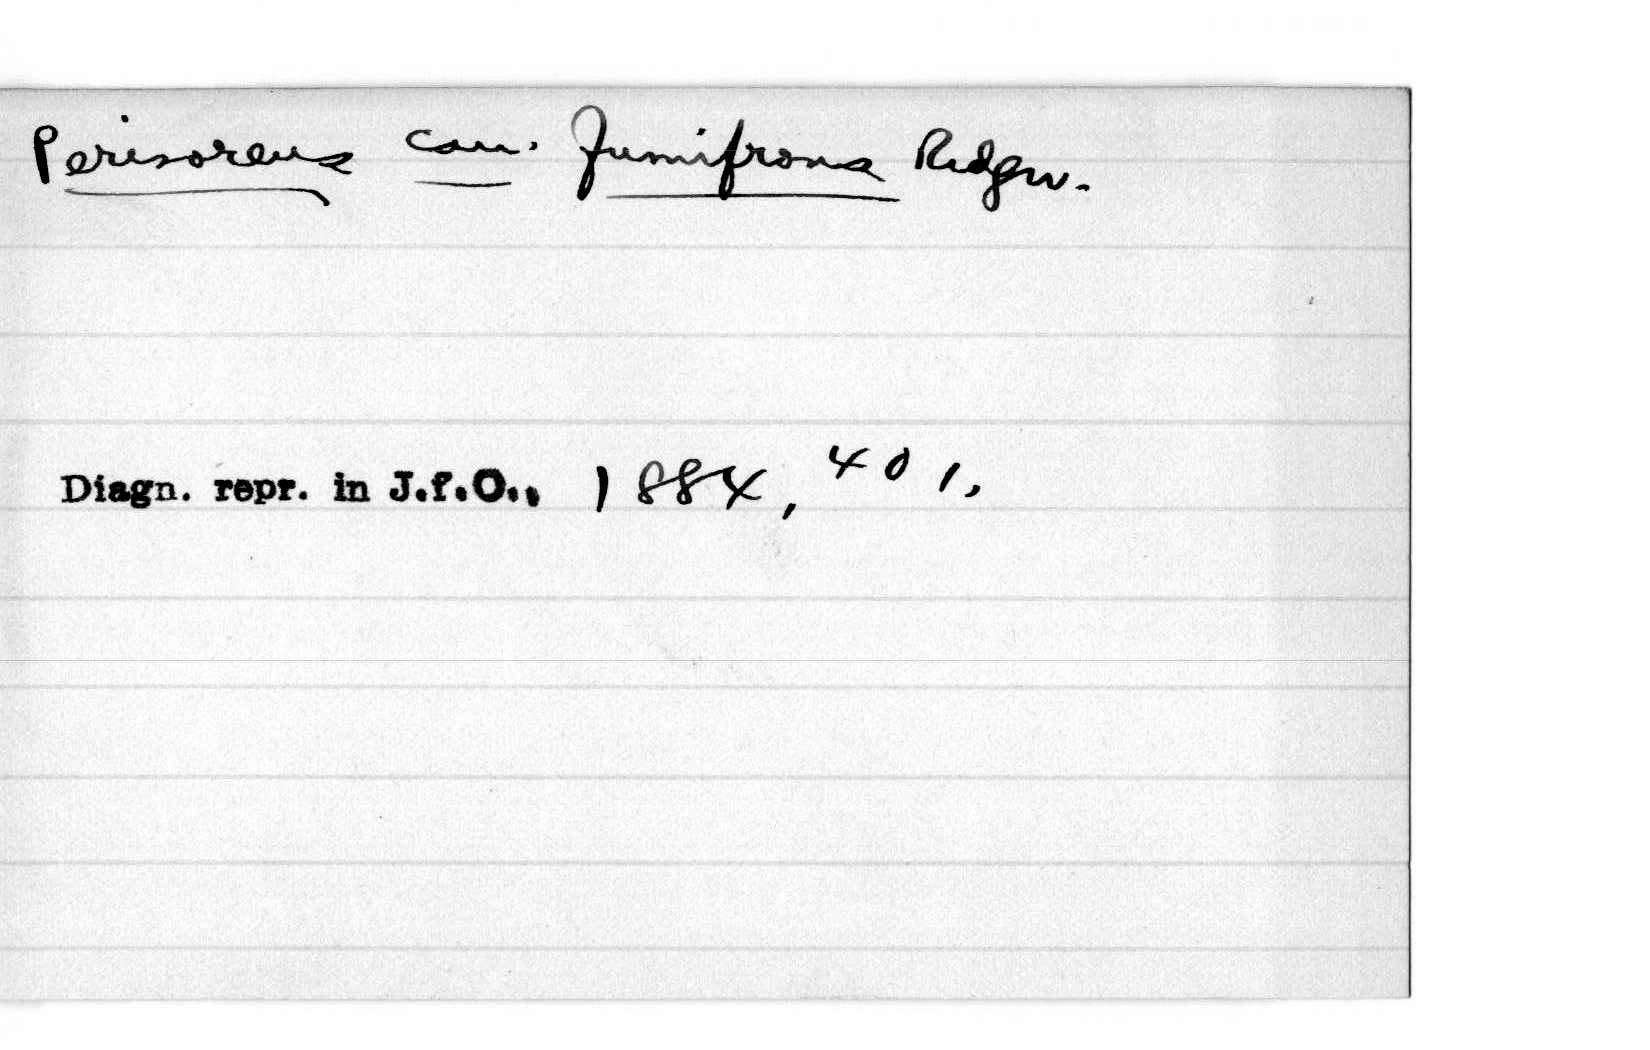 Perisoreus can. fumifrons Ridgw.
Diagn. repr. in J.f.O., 1884, 401,